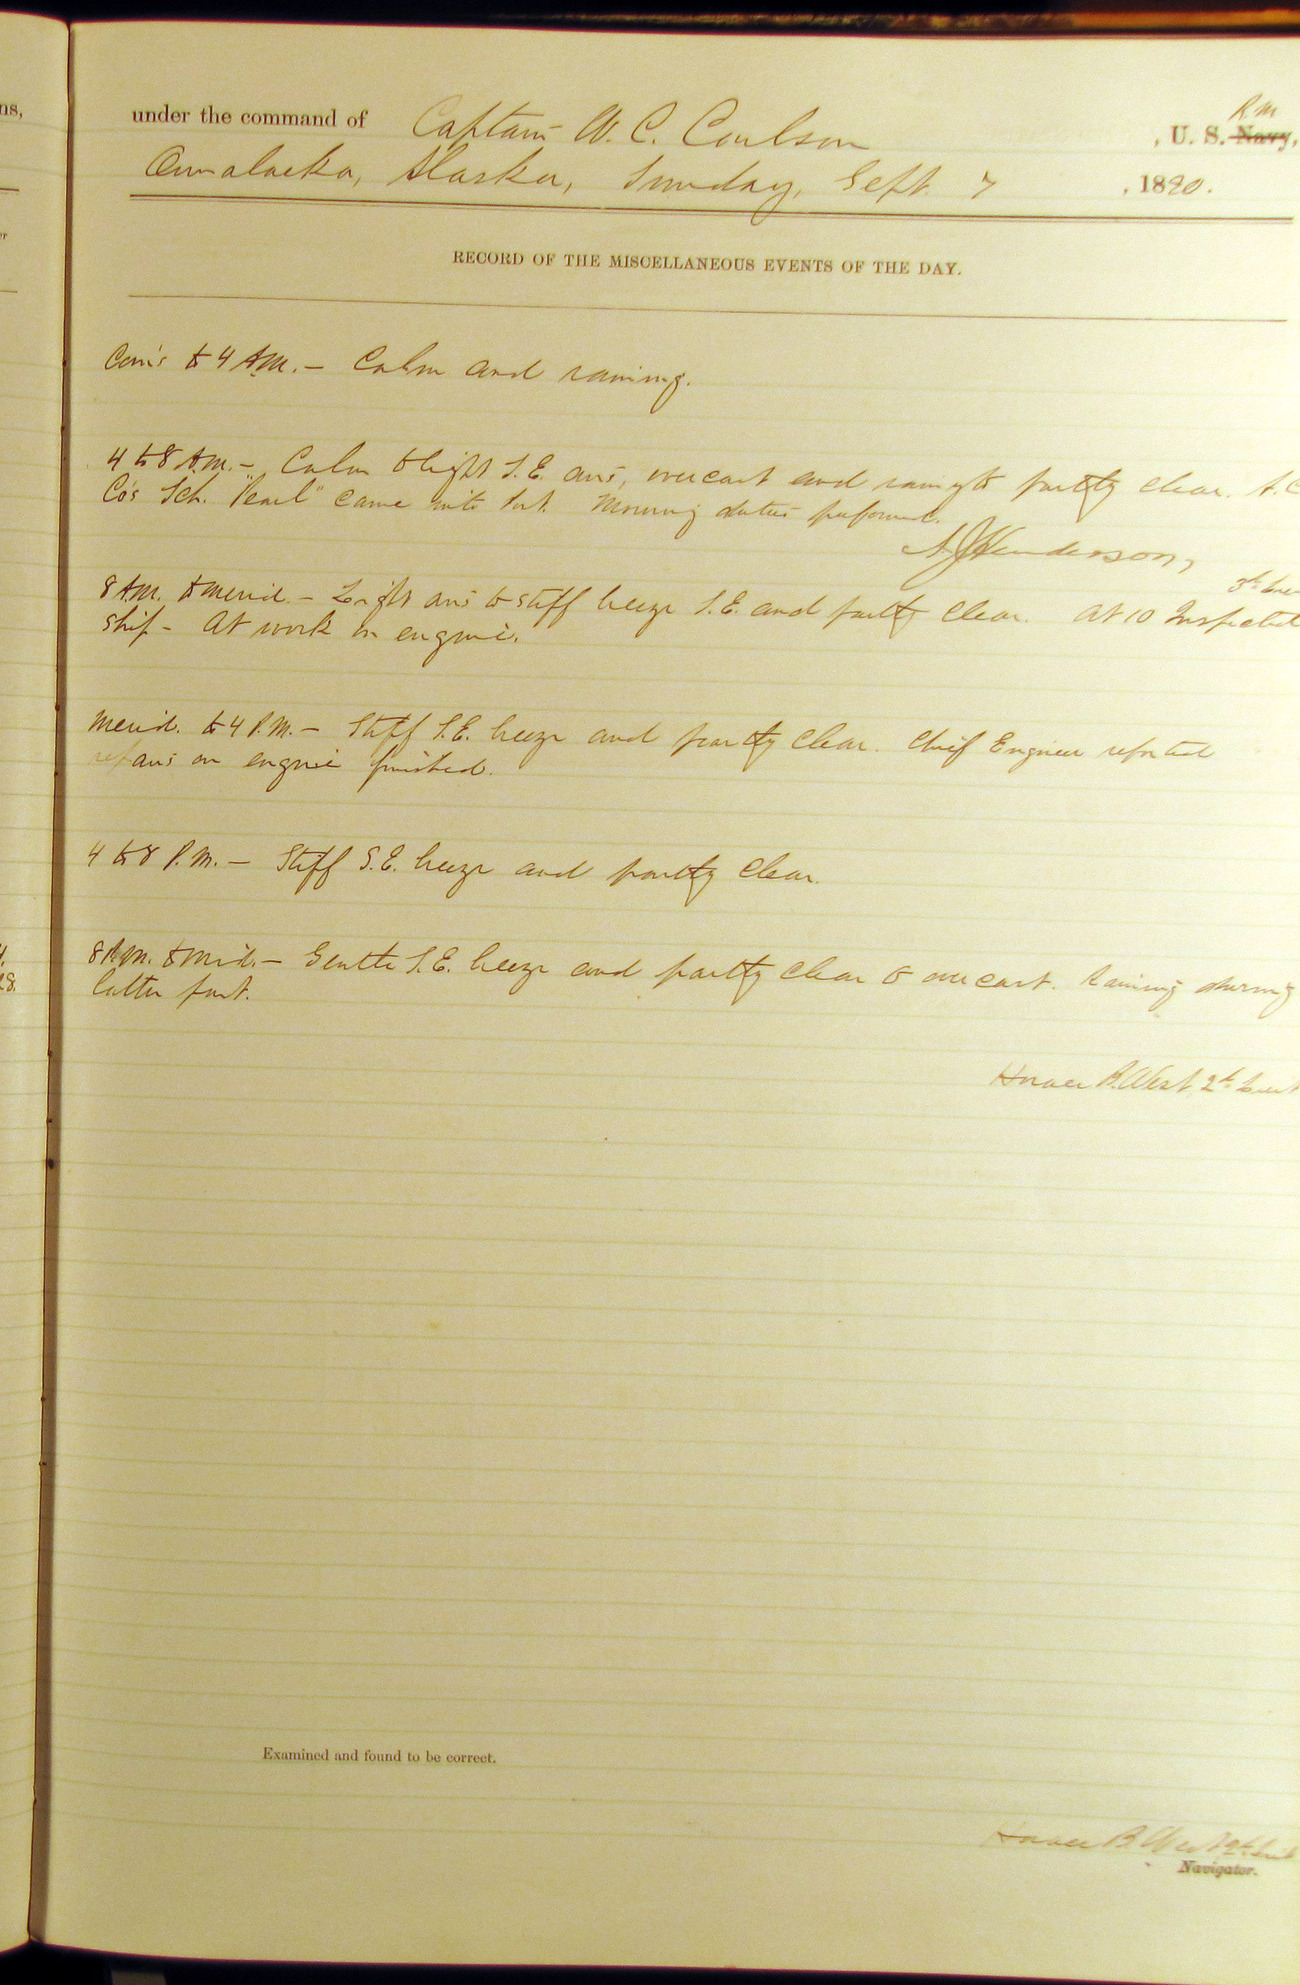 ns,
under the command of Captain W. C. Coulson
R.M.
, U. S. Navy,
Ounalaska, Alaska, Sunday, Sept. 7, 1890.
RECORD OF THE MISCELLANEOUS EVENTS OF THE DAY.
Com's to 4 A.M. — Calm and raining.
4 to 8 A.M. — Calm to light S.E. airs, overcast and rainy to partly clear. A.C.
Co's Sch. "Pearl" came into Port. Morning duties performed.
A J Henderson,
3d Lieu
8 A.M. to merid. — Light airs to stiff breeze S.E. and partly clear. At 10 Inspected
ship — At work on engine.
Merid. to 4 P.M. — Stiff S.E. breeze and partly clear. Chief Engineer reported
repairs on engine finished.
4 to 8 P.M. — Stiff S.E. breeze and partly clear.
8 P.M. to mid. — Gentle S.E. breeze and partly clear to overcast. Raining during
latter part.
28.
Horace B. West, 2d Lieut
Examined and found to be correct.
Horace B. West 2d Lieut
Navigator.